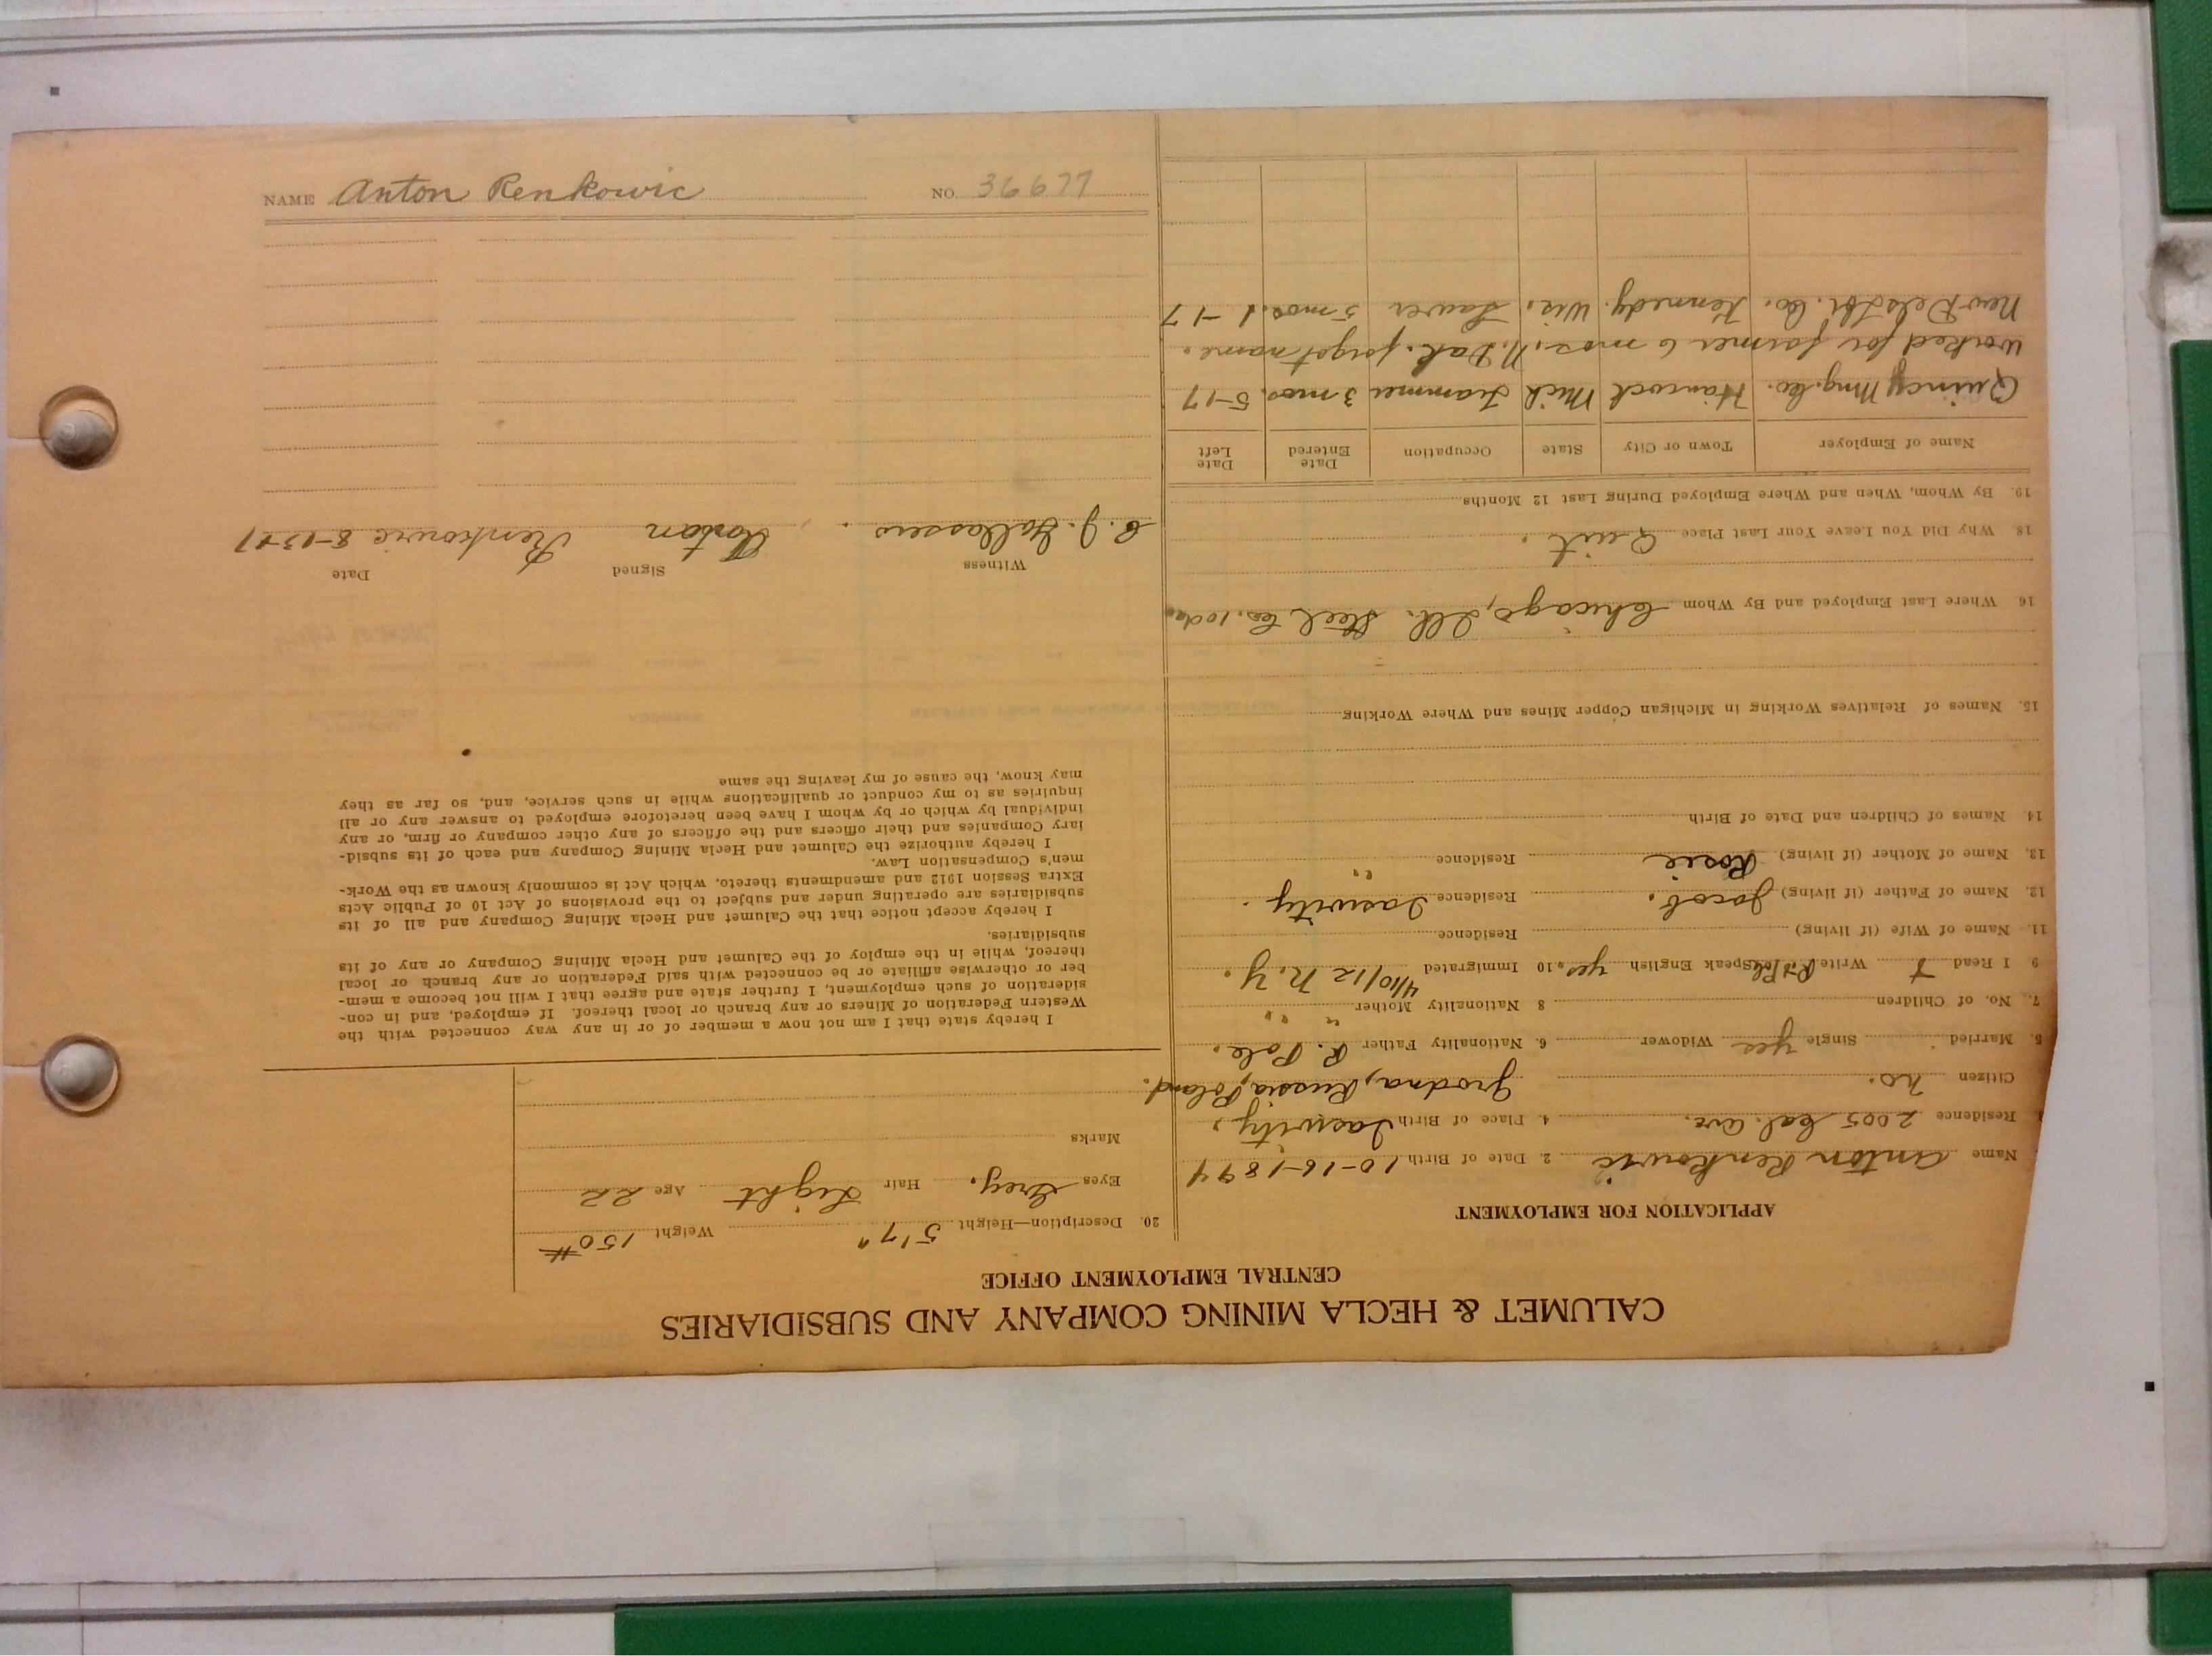 CALUMET & HECLA MINING COMPANY AND SUBSIDIARIES
CENTRAL EMPLOYMENT OFFICE
APPLICATION FOR EMPLOYMENT
Name Anton Renkowic 2. Date of Birth 10-16-1894
Residence 2005 Cal. Ave. 4. Place of Birth
Citizen no. Grodna, Russia, Poland.
5. Married Single yes Widower 6. Nationality Father R. Pole.
7. No. of Children 8 Nationality Mother " "
9 I Read Write Speak English yes. 10 Immigrated 4/10/12 N.Y.
11. Name of Wife (if living) Residence
12. Name of Father (if living) Jacob. Residence
13. Name of Mother (if living) Rosie Residence "
14. Names of Children and Date of Birth
15. Names of Relatives Working in Michigan Copper Mines and Where Working
16 Where Last Employed and By Whom Chicago, Ill. Steel Co. 10 da.
18 Why Did You Leave Your Last Place Quit.
19. By Whom, When and Where Employed During Last 12 Months
Name of Employer Town or City State Occupation Date Entered Date Left
Quincy Mng. Co. Hancock Mich Trammer 3 mos. 5-17
Worked for farmer 6 mos. N. Dak. forget name.
Kennedy. Wis. 5 mos. 1-17
20. Description—Height 5'7" Weight 150#
Eyes Grey. Hair Light Age 22
Marks
I hereby state that I am not now a member of or in any way connected with the
Western Federation of Miners or any branch or local thereof. If employed, and in con-
sideration of such employment, I further state and agree that I will not become a mem-
ber or otherwise affiliate or be connected with said Federation or any branch or local
thereof, while in the employ of the Calumet and Hecla Mining Company or any of its
subsidiaries.
I hereby accept notice that the Calumet and Hecla Mining Company and all of its
subsidiaries are operating under and subject to the provisions of Act 10 of Public Acts
Extra Session 1912 and amendments thereto, which Act is commonly known as the Work-
men's Compensation Law.
I hereby authorize the Calumet and Hecla Mining Company and each of its subsid-
iary Companies and their officers and the officers of any other company or firm, or any
individual by which or by whom I have been heretofore employed to answer any or all
inquiries as to my conduct or qualifications while in such service, and, so far as they
may know, the cause of my leaving the same
Witness Signed Date
Anton Renkowic 8-13-17
NAME Anton Renkowic NO. 36677